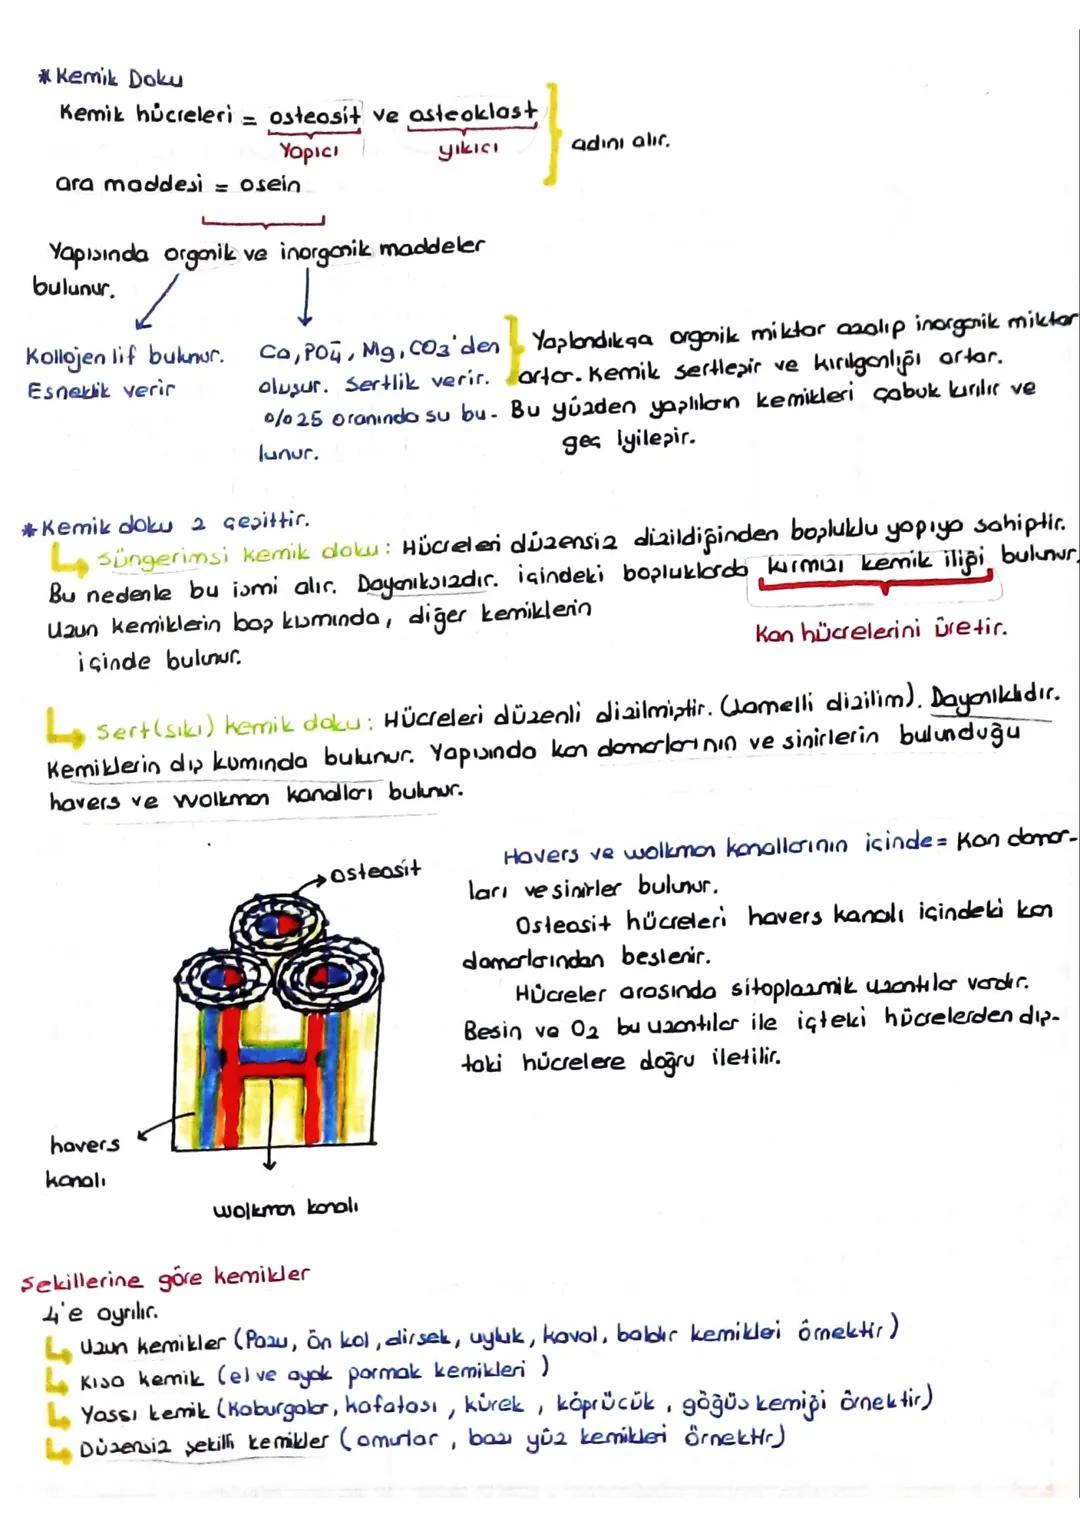 * Kemik Doku
Kemik hücreleri = osteosit ve osteoklast
Yapıcı yıkıcı
adını alır.
ara maddesi = osein
Yapısında organik ve inorganik maddeler
bulunur.
Kollojen lif bulunur.
Esneklik verir
Ca, PO4, Mg, CO3'den
oluşur. Sertlik verir.
%25 oranında su bu-
lunur.
Yaşlandıkça organik miktar azalıp inorganik miktar
artar. Kemik sertleşir ve kırılganlığı artar.
Bu yüzden yaşlıların kemikleri çabuk kırılır ve
geç iyileşir.
* Kemik doku 2 çeşittir.
Süngerimsi kemik doku: Hücreleri düzensiz dizildiğinden boşluklu yapıya sahiptir.
Bu nedenle bu ismi alır. Dayanıksızdır. içindeki boşluklarda kırmızı kemik iliği bulunur.
Uzun kemiklerin baş kısmında, diğer kemiklerin
içinde bulunur.
Kan hücrelerini üretir.
Sert(sıkı) kemik doku: Hücreleri düzenli dizilmiştir. (Lamelli dizilim). Dayanıklıdır.
Kemiklerin dış kısmında bulunur. Yapısında kan damarlarının ve sinirlerin bulunduğu
havers ve wolkman kanalları bulunur.
osteosit
havers
kanalı
wolkman kanalı
Havers ve wolkman kanallarının içinde = Kan damar-
ları ve sinirler bulunur.
Osteosit hücreleri havers kanalı içindeki kan
damarlarından beslenir.
Hücreler arasında sitoplazmik uzantılar vardır.
Besin ve O2 bu uzantılar ile içteki hücrelerden dış-
taki hücrelere doğru iletilir.
Şekillerine göre kemikler
4'e ayrılır.
Uzun kemikler (Pazu, ön kol, dirsek, uyluk, kaval, baldır kemikleri örnektir)
Kısa kemik (el ve ayak parmak kemikleri)
Yassı kemik (Kaburgalar, kafatası, kürek, köprücük, göğüs kemiği örnektir)
Düzensiz şekilli kemikler (omurlar, bazı yüz kemikleri örnektir)